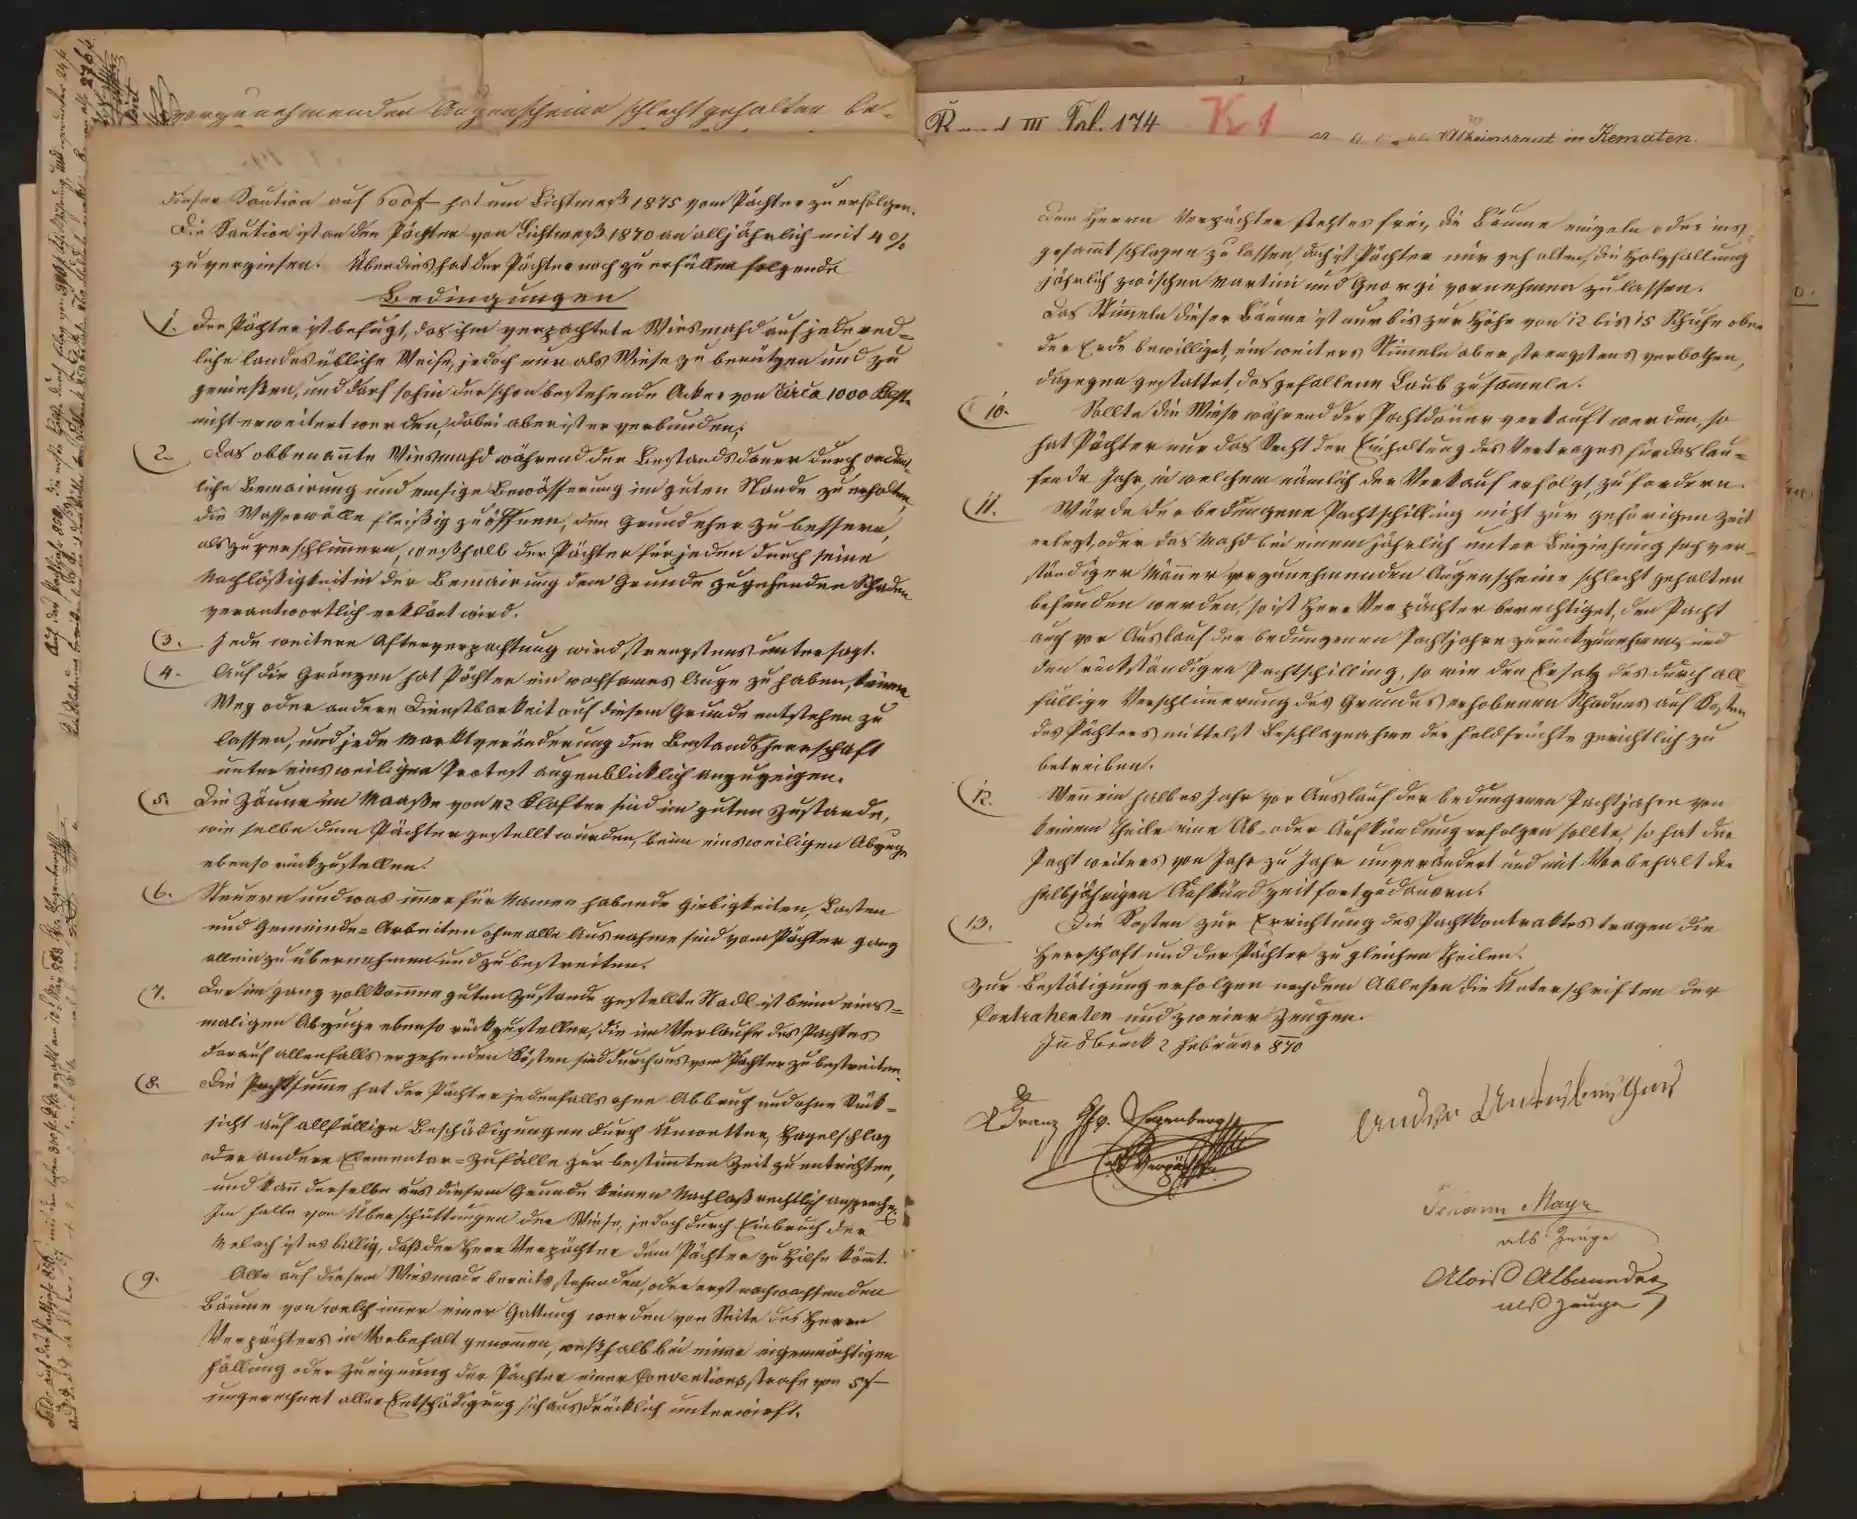 vorzunehmenden Augenschein schlecht gehalten be-
Band III Fol. 174 K 1
in Kematen.
dieser Kaution auf 600 f hat um Lichtmeß 1875 vom Pächter zu erfolgen.
Die Kaution ist an den Pächter von Lichtmeß 1870 an alljährlich mit 4 %
zu verzinsen. Überdies hat der Pächter noch zu erfüllen folgende
Bedingungen
1. Der Pächter ist befugt, das ihm verpachtete Wiesmahd auf jede red-
liche landesübliche Weise, jedoch nur als Wiese zu benützen und zu
genießen, und darf sohin der schon bestehende Acker von Circa 1000 Klft.
nicht erweitert werden, dabei aber ist er verbunden,
2. Das obbenannte Wiesmahd während der Bestandsdauer durch ordent-
liche Bemairung und emsige Bewässerung im guten Stande zu erhalten,
die Wasserwälle fleißig zu öffnen, den Grund eher zu bessern,
als zu verschlimmern, weßhalb der Pächter für jeden durch seine
Nachläßigkeit in der Bemairung dem Grunde zugehenden Schaden
verantwortlich erklärt wird.
3. Jede weitere Afterverpachtung wird strengstens untersagt.
4. Auf die Gränzen hat Pächter ein wachsames Auge zu haben, keinen
Weg oder andere Dienstbarkeit auf diesem Grunde entstehen zu
lassen, und jede Marktveränderung der Bestandsherrschaft
unter einsweiligen Protest augenblicklich anzuzeigen.
5. Die Zäune im Maaße von 42 Klafter sind im guten Zustande,
wie selbe dem Pächter gestellt wurden, beim einsweiligen Abzuge
ebenso rückzustellen.
6. Steuern und was immer für Namen habende Giebigkeiten, Lasten
und Gemeinde-Arbeiten ohne alle Ausnahme sind vom Pächter ganz
allein zu übernehmen und zu bestreiten.
7. Der im ganz vollkommen guten Zustande gestellte Stadl ist beim eins-
maligen Abzuge ebenso rückzustellen, die im Verlaufe des Pachtes
darauf allenfalls ergehenden Kosten sind durchaus vom Pächter zu bestreiten.
8. Die Pachtsumme hat der Pächter jedenfalls ohne Abbruch und ohne Rück-
sicht auf allfällige Beschädigungen durch Unwetter, Hagelschlag
oder andere Elementar-Zufälle zur bestimmten Zeit zu entrichten,
und kann derselbe aus diesem Grunde keinen Nachlaß rechtlich ansprechen.
Im Falle von Überschüttungen der Wiese, jedoch durch Einbruch der
Melach ist es billig, daß der Herr Verpächter dem Pächter zu Hilfe kömmt.
9. Alle auf diesem Wiesmade bereits stehenden, oder erst nachwachsenden
Bäume von welch immer einer Gattung werden von Seite des Herrn
Verpächters in Vorbehalt genommen, weßhalb bei einer eigenmächtigen
Fällung oder Zueignung der Pächter einer Conventionsstrafe von 5 f
ungerechnet aller Entschädigung sich ausdrücklich unterwirft.
Dem Herrn Verpächter steht es frei, die Bäume einzeln oder ins-
gesammt schlagen zu lassen, doch ist Pächter nur gehalten, die Holzfällung
jährlich zwischen Martini und Georgi vornehmen zu lassen.
Das Stümmeln dieser Bäume ist nur bis zur Höhe von 12 bis 15 Schuhe ober
der Erde bewilliget, ein weiters Stümeln aber strengstens verbothen,
dagegen gestattet, das gefallene Laub zu sammeln.
10. Sollte die Wiese während der Pachtdauer verkauft werden, so
hat Pächter nur das Recht der Einhaltung des Vertrages für das lau-
fende Jahr, in welchem nämlich der Verkauf erfolgt, zu fordern.
11. Würde der bedungene Pachtschilling nicht zur gehörigen Zeit
erlegt, oder das Mahd bei einem jährlich unter Beiziehung sach ver-
ständiger Männer vorzunehmenden Augenscheine schlecht gehalten
befunden werden, so ist Herr Verpächter berechtiget, den Pacht
auch vor Auslauf der bedungenen Pachtjahre zurückzunehmen, und
den rückständigen Pachtschilling, so wie den Ersatz des durch all
fällige Verschlimmerung des Grundes erhobenen Schadens auf Kosten
des Pächters mittelst Beschlagnahme der Feldfrüchte gerichtlich zu
betreiben.
12. Wenn ein halbes Jahr vor Auslauf der bedungenen Pachtjahre von
keinem Theile eine Ab- oder Aufkündung erfolgen sollte, so hat der
Pacht weiters von Jahr zu Jahr unverändert und mit Vorbehalt der
halbjährigen Aufkündzeit fortzudauern.
13. Die Kosten zur Errichtung des Pachtkontraktes tragen die
Herrschaft und der Pächter zu gleichen Theilen.
Zur Bestätigung erfolgen nach dem Ablesen die Unterschriften der
Contrahenten und zweier Zeugen.
Innsbruck 2 Februar 870
Franz
als Verpächter
Johann Mayr
als Zeuge
Alois Albaneder
als Zeuge